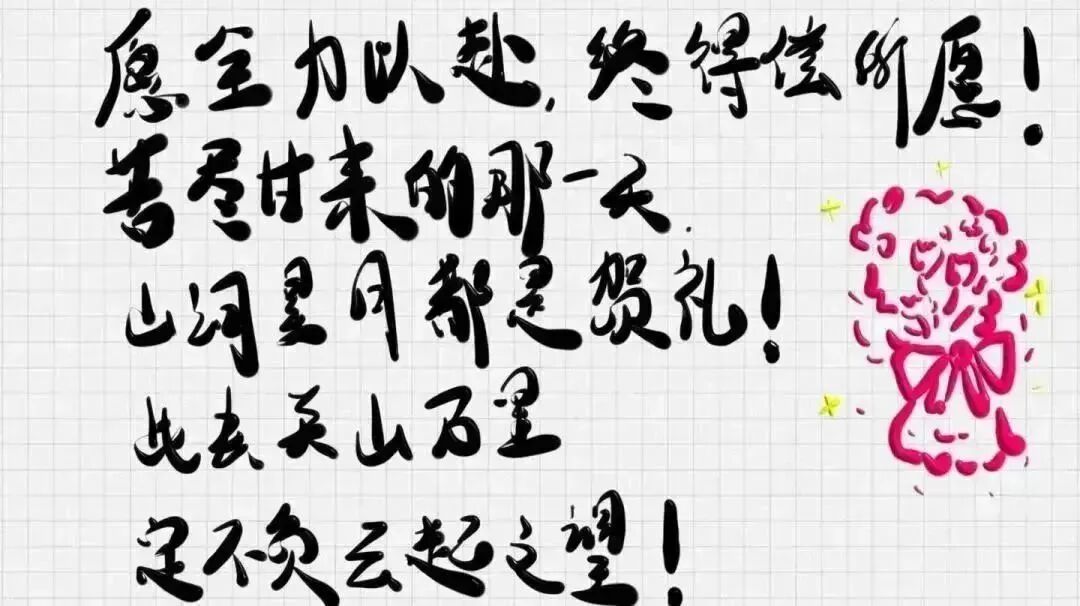 愿全力以赴,终得偿所愿!
苦尽甘来的那一天,
山河星月都是贺礼!
此去关山万里
定不负云起之望!